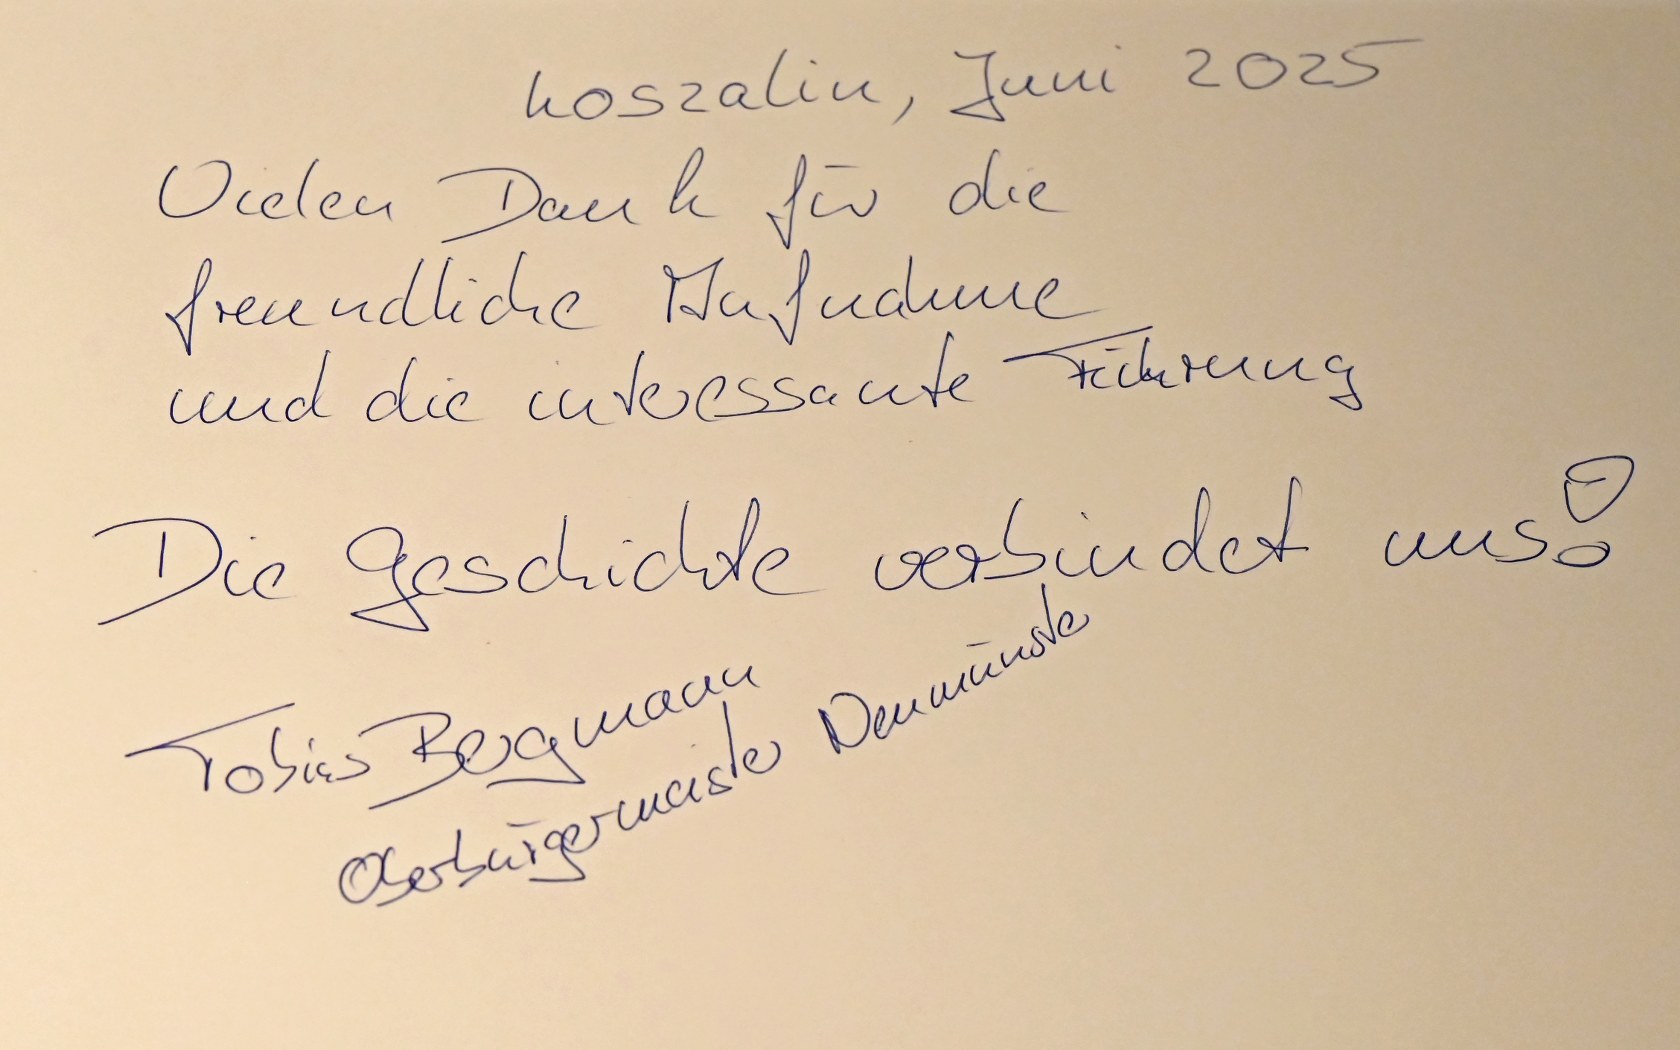 Koszalin, Juni 2025
Vielen Dank für die
freundliche Aufnahme
und die interessante Führung
Die Geschichte verbindet uns!
Tobias Bergmann
Oberbürgermeister Neumünster